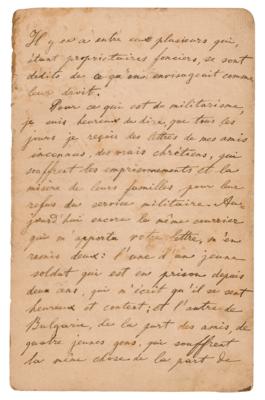 Il y en a entre eux plusieurs qui,
étant propriétaires fonciers, se sont
dédits de ce qu'on envisageait comme
leur droit.
Pour ce qui est du militarisme,
je suis heureux de dire, que tous les
jours je reçois des lettres de mes amis
inconnus, des vrais chrétiens, qui
souffrent les emprisonnements et la
misère de leurs familles pour leur
refus du service militaire. Au-
jourd'hui encore le même courrier
qui m'apporta votre lettre, m'en
remis deux: l'une d'un jeune
soldat qui est en prison depuis
deux ans, qui m'écrit qu'il se sent
heureux et content; et l'autre de
Bulgarie, de la part des amis, de
quatre jeunes gens, qui souffrent
la même chose de la part de